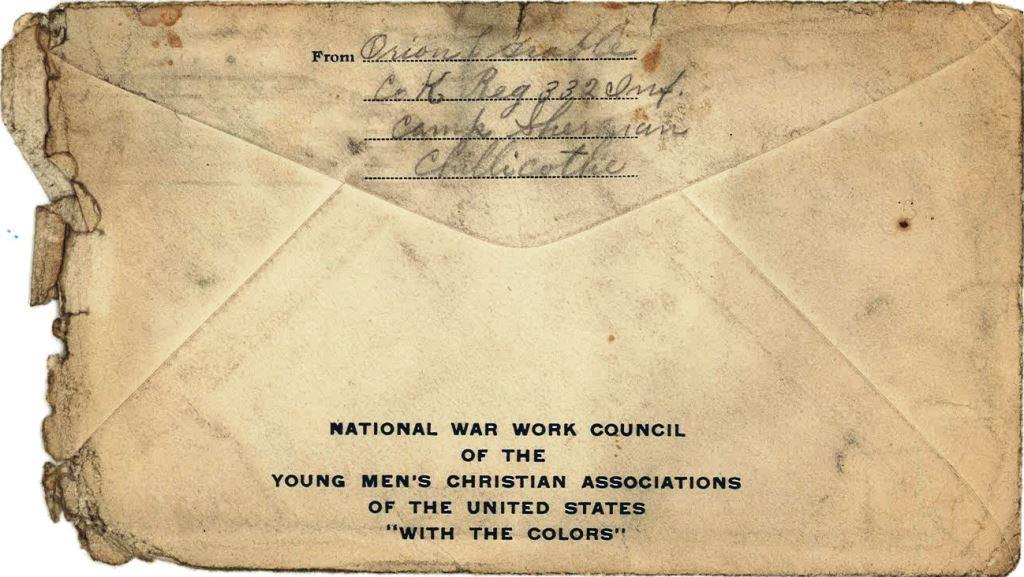 From Orion L Grable
Co. K Reg 332 Inf.
Camp Sherman
Chillicothe
NATIONAL WAR WORK COUNCIL
OF THE
YOUNG MEN'S CHRISTIAN ASSOCIATIONS
OF THE UNITED STATES
"WITH THE COLORS"